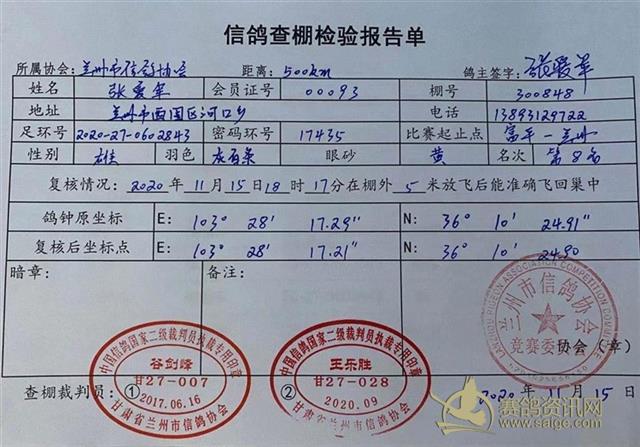 信鸽查棚检验报告单
所属协会: 兰州市信鸽协会 距离: 500km 鸽主签字: 张爱军
姓名 张爱军 会员证号 00093 棚号 300848
地址 兰州市西固区河口乡 电话 13893129722
足环号 2020-27-0602843 密码环号 17435 比赛起止点 富平—兰州
性别 雄 羽色 灰白条 眼砂 黄 名次 第8名
复核情况: 2020年11月15日18时17分在棚外5米放飞后能准确飞回巢中
鸽钟原坐标 E: 103° 28' 17.29" N: 36° 10' 24.91"
复核后坐标点 E: 103° 28' 17.21" N: 36° 10' 24.90
暗章: 备注:
兰州市信鸽协会
竞赛委
协会(章)
中国信鸽国家二级裁判员执裁专用印章
谷剑峰
甘27-007
2017.06.16
甘肃省兰州市信鸽协会
中国信鸽国家二级裁判员执裁专用印章
王乐胜
甘27-028
2020.09
甘肃省兰州市信鸽协会
查棚裁判员: ① ② 2020年11月15日
赛鸽资讯网
www.saige.com